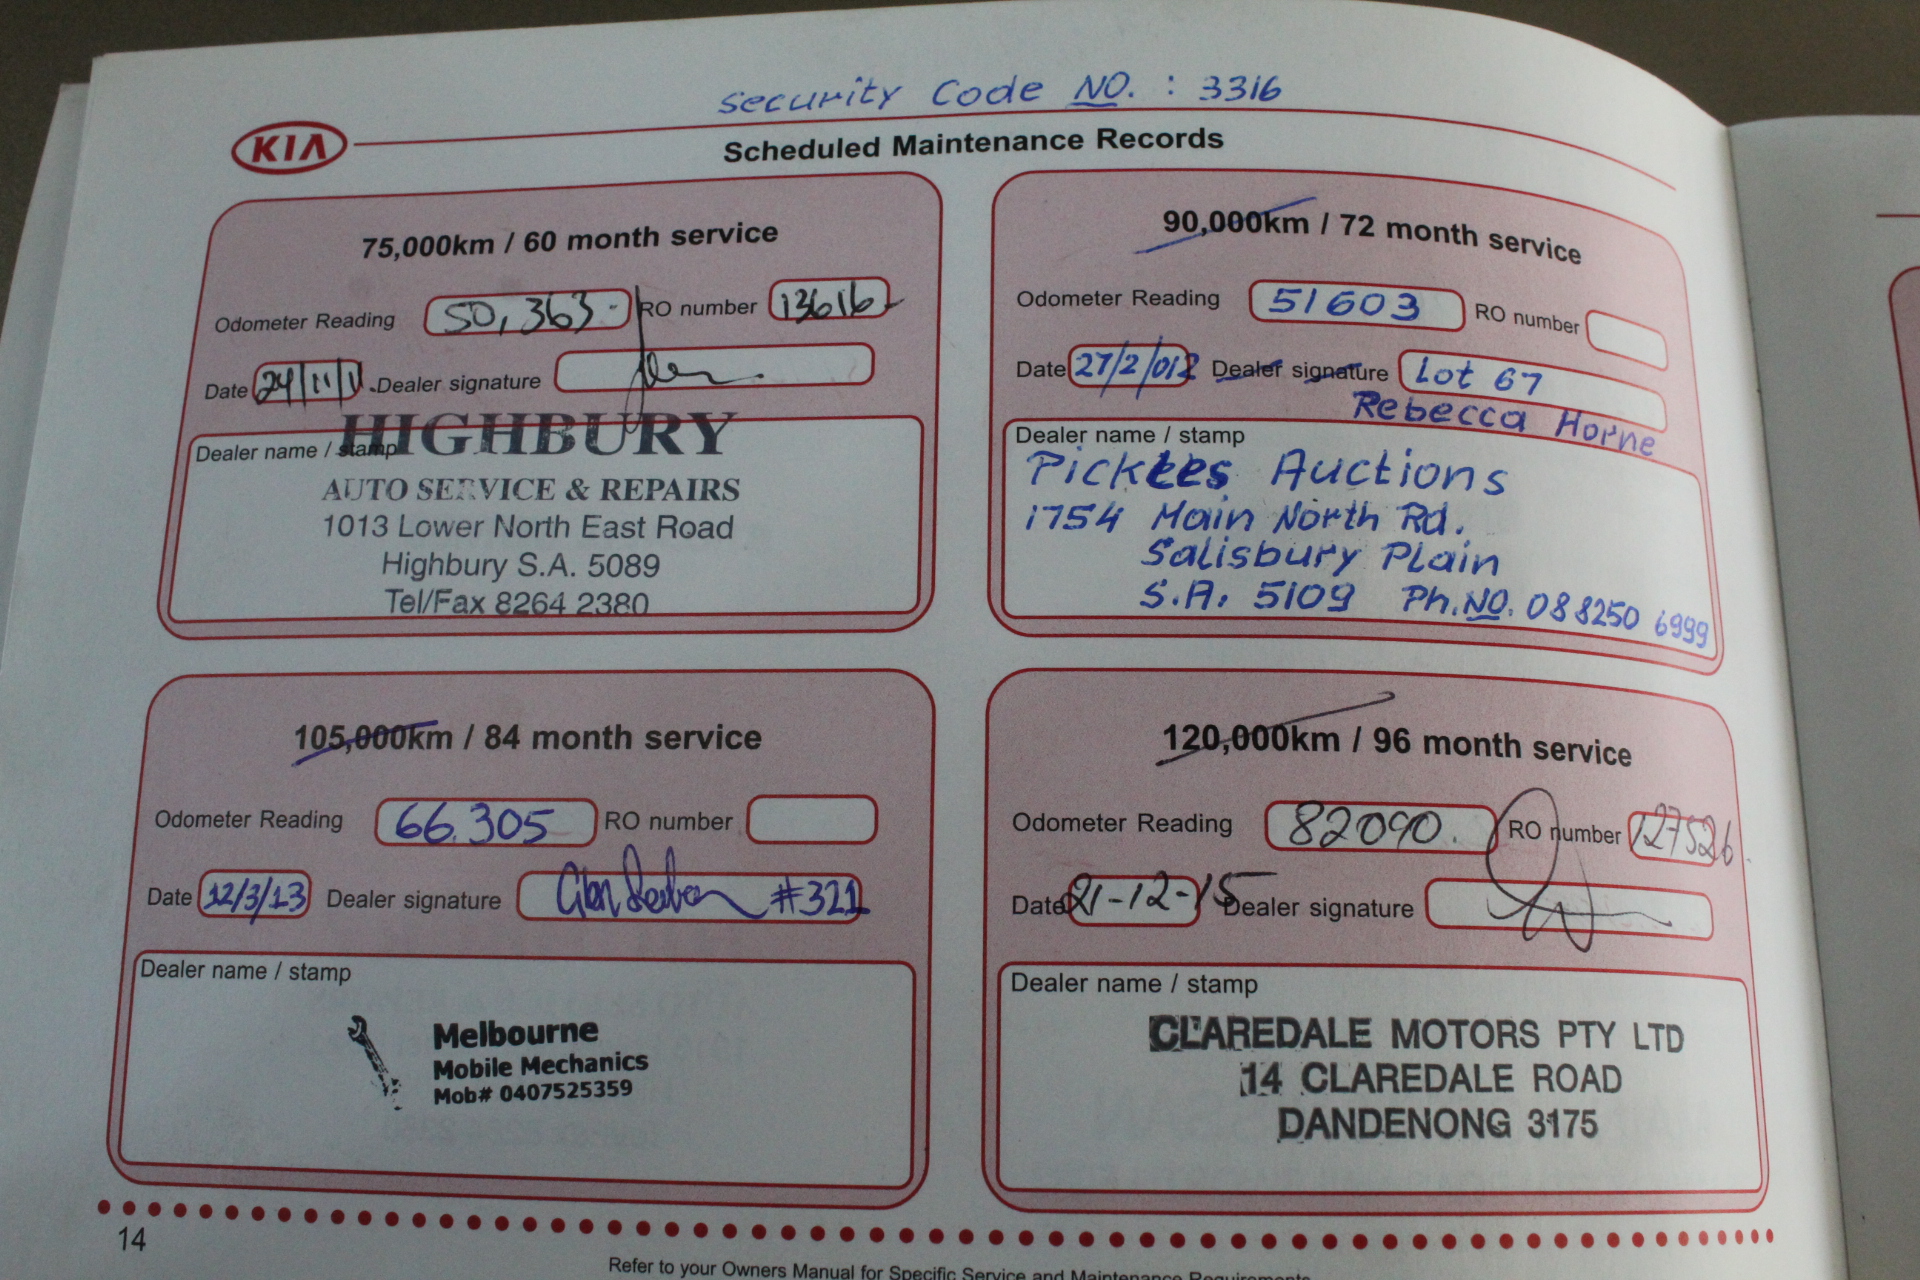 Security Code NO. : 3316
KIA
Scheduled Maintenance Records
75,000km / 60 month service
Odometer Reading 50,363 RO number 13616
Date 24/11/11 Dealer signature
Dealer name / stamp
HIGHBURY
AUTO SERVICE & REPAIRS
1013 Lower North East Road
Highbury S.A. 5089
Tel/Fax 8264 2380
90,000km / 72 month service
Odometer Reading 51603 RO number
Date 27/2/012 Dealer signature Lot 67
Rebecca Horne
Dealer name / stamp
Pickles Auctions
1754 Main North Rd.
Salisbury Plain
S.A. 5109 Ph.NO. 08 8250 6999
105,000km / 84 month service
Odometer Reading 66.305 RO number
Date 12/3/13 Dealer signature #321
Dealer name / stamp
Melbourne
Mobile Mechanics
Mob# 0407525359
120,000km / 96 month service
Odometer Reading 82090. RO number 127526
Date 21-12-15 Dealer signature
Dealer name / stamp
CLAREDALE MOTORS PTY LTD
14 CLAREDALE ROAD
DANDENONG 3175
14
Refer to your Owners Manual for Specific Service and Maintenance Requirements